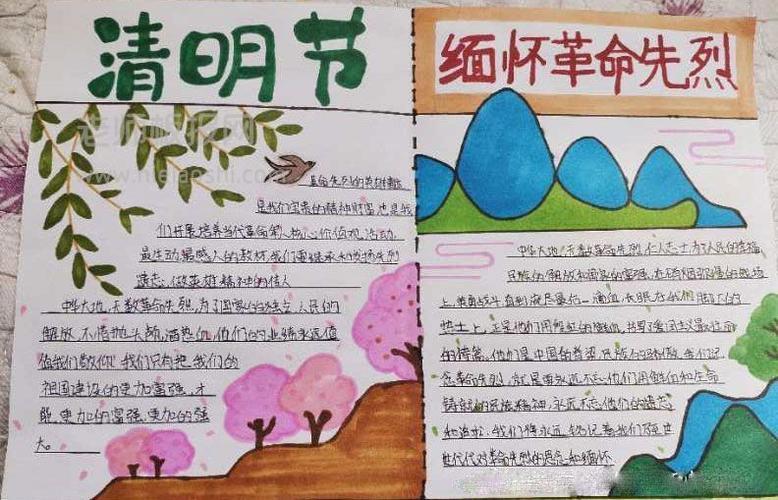 清明节
革命先烈的英雄事迹
是我们宝贵的精神财富也是我
们开展培养当代革命 核心价值观活动.
最生动最感人的教材.我们要继承和发扬先烈
遗志,做英雄精神的传人
中华大地,无数革命先烈,为了国家的独立,人民的
解放,不惜抛头颅,洒热血,他们的业绩永远值
值我们敬仰.我们只有把我们的
祖国建设的更加富强,才
能更加的富强,更加的强
大。
缅怀革命先烈
中华大地,无数革命先烈.仁人志士为了人民的幸福
民族的解放和国家的富强,在硝烟弥漫的战场
上,英勇战斗直到流尽最后一滴血,长眠在我们脚下的
热土上,正是他们用鲜红的 书写 爱国主义最壮丽
的诗篇.他们是中国的 民族的 我们
革命先烈,就是要永远不忘他们用鲜血和生命
铸就的民族精神,永远不忘他们的遗志
和 我们将永远 记着我们
世代代对革命先烈的思念和缅怀
老师板报网